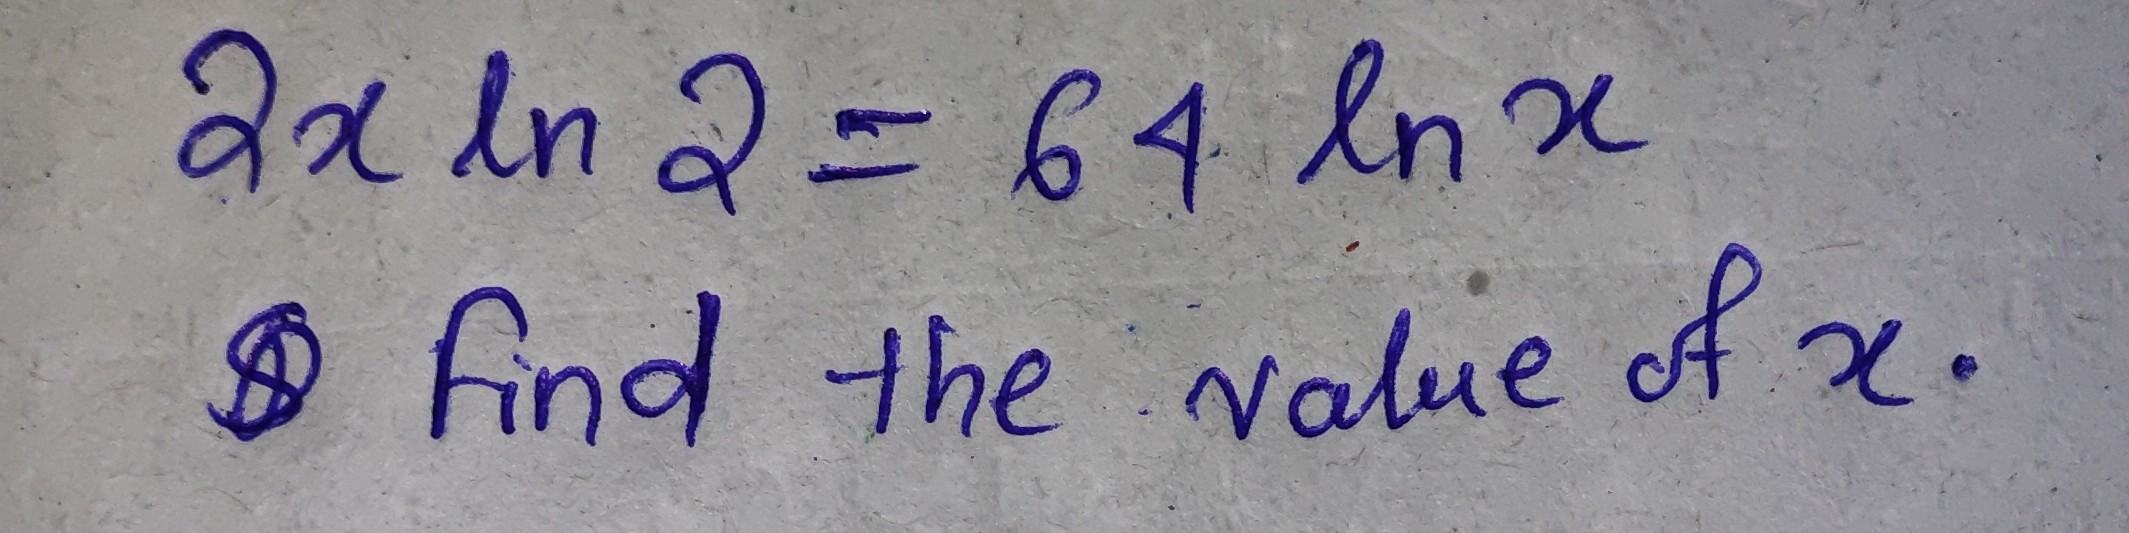 2x ln 2 = 64 ln x
find the value of x.